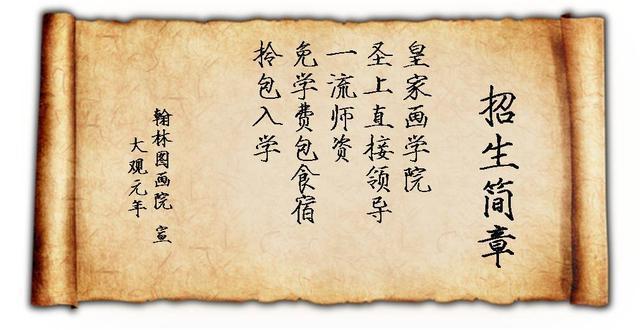 招生简章
皇家画学院
圣上直接领导
一流师资
免学费包食宿
拎包入学
翰林图画院 宣
大观元年